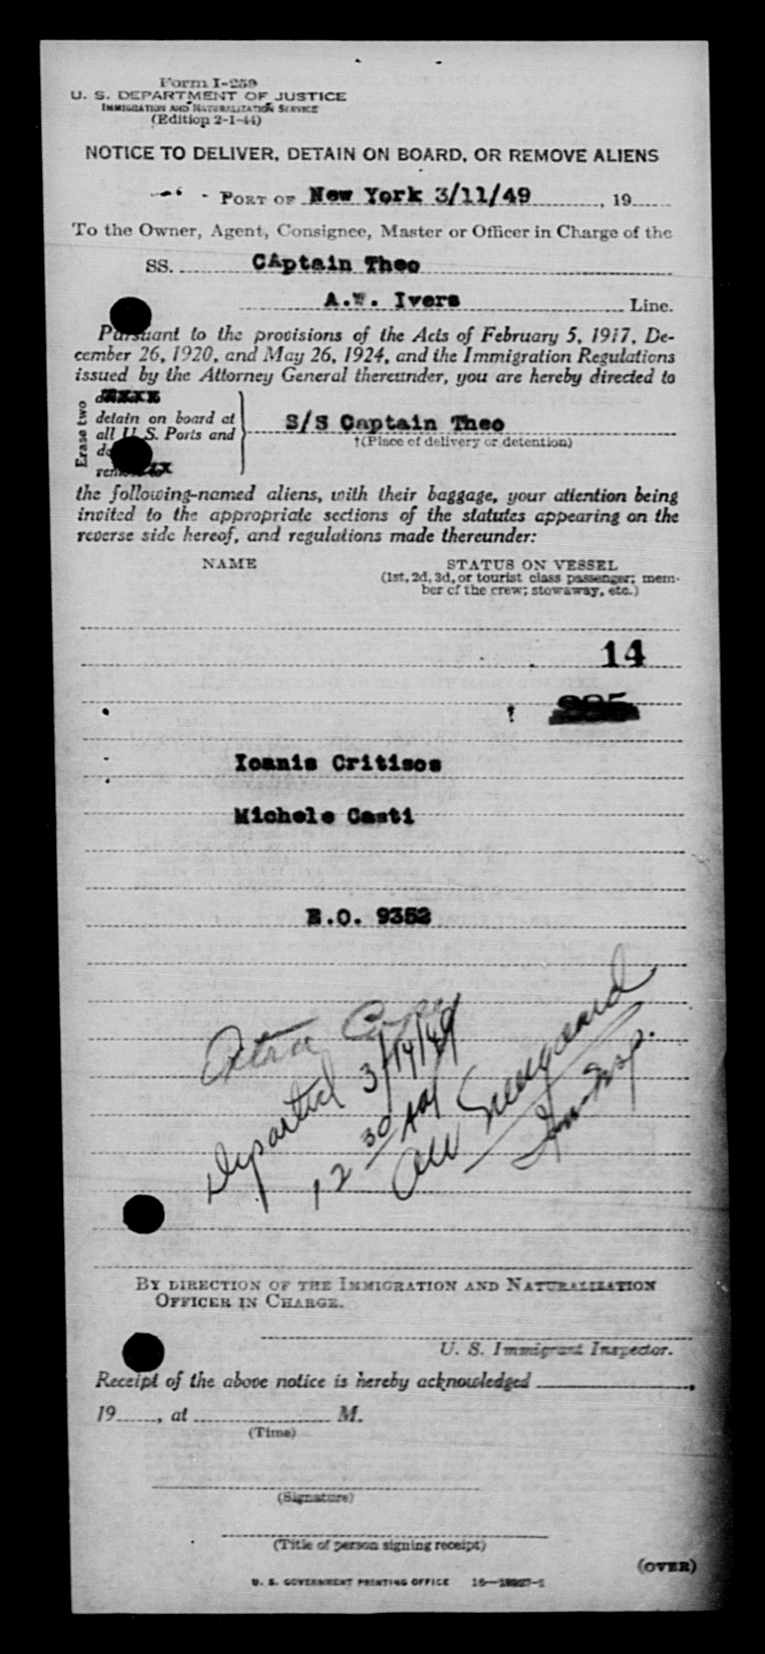 Form I-259
U. S. DEPARTMENT OF JUSTICE
IMMIGRATION AND NATURALIZATION SERVICE
(Edition 2-1-44)
NOTICE TO DELIVER, DETAIN ON BOARD, OR REMOVE ALIENS
PORT OF New York 3/11/49, 19
To the Owner, Agent, Consignee, Master or Officer in Charge of the
SS. CAptain Theo
A.W. Ivers Line.
Pursuant to the provisions of the Acts of February 5, 1917, De-
cember 26, 1920, and May 26, 1924, and the Immigration Regulations
issued by the Attorney General thereunder, you are hereby directed to
Erase two
detain on board at
all U.S. Ports and
S/S Captain Theo
†(Place of delivery or detention)
the following-named aliens, with their baggage, your attention being
invited to the appropriate sections of the statutes appearing on the
reverse side hereof, and regulations made thereunder:
NAME STATUS ON VESSEL
(1st, 2d, 3d, or tourist class passenger; mem-
ber of the crew; stowaway, etc.)
14
Ioanis Critisos
Michele Casti
E.O. 9352
Extra Copy
Departed 3/14/49
12 30 AM
Imm Insp.
BY DIRECTION OF THE IMMIGRATION AND NATURALIZATION
OFFICER IN CHARGE.
U. S. Immigrant Inspector.
Receipt of the above notice is hereby acknowledged
19, at M.
(Time)
(Signature)
(Title of person signing receipt)
(OVER)
U. S. GOVERNMENT PRINTING OFFICE